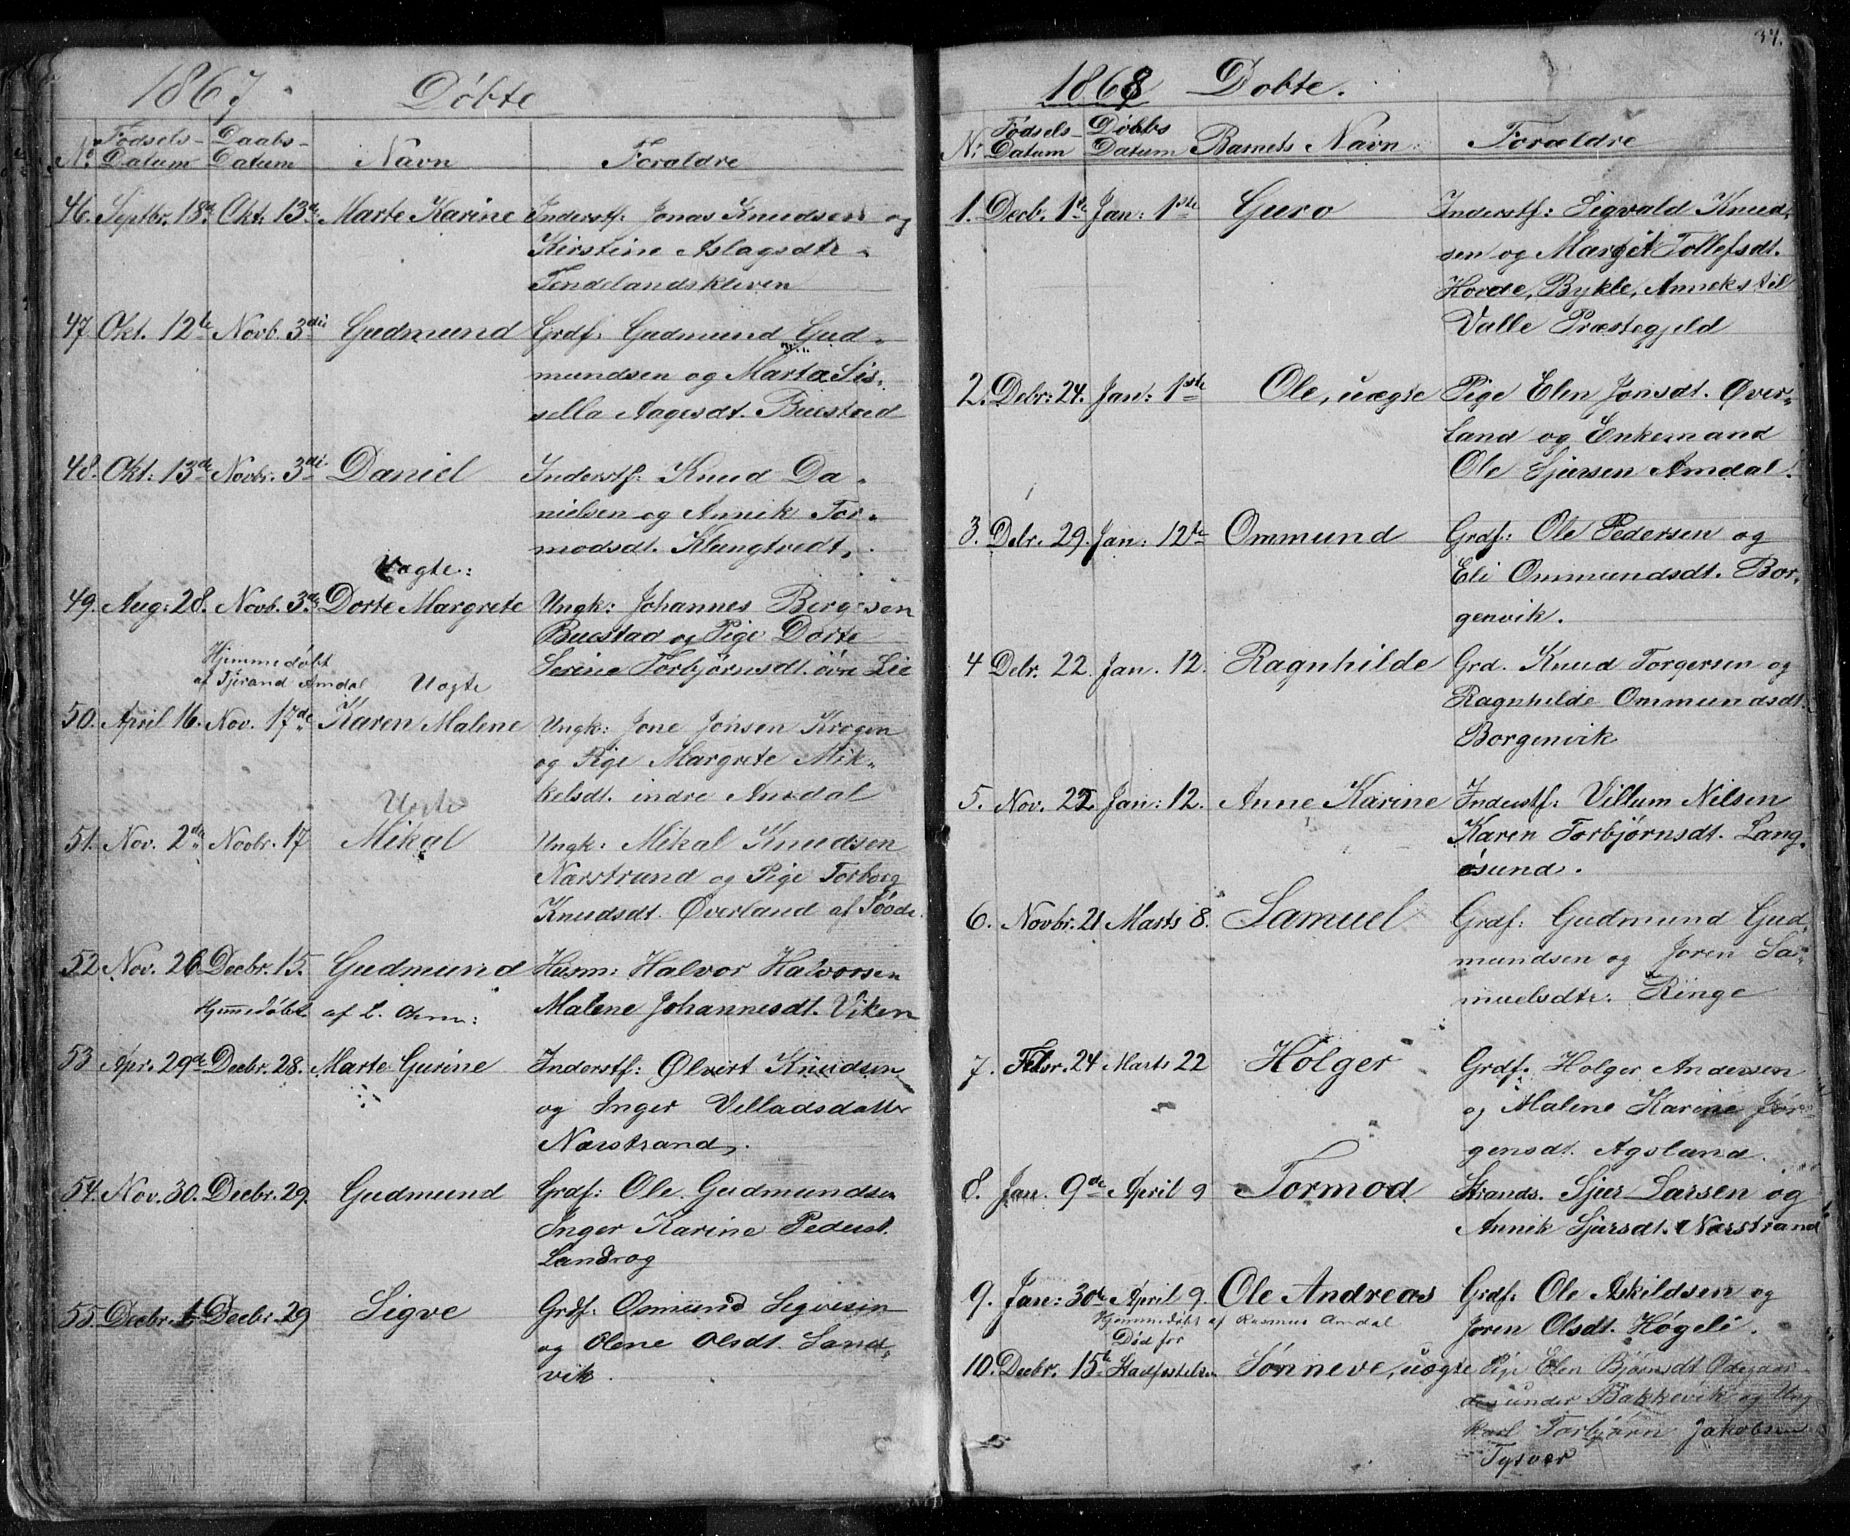 1867 Døbte
No Fødsels-Datum Daabs-Datum Navn Forældre
46. Septbr. 18de Okt. 13de Marte Karine Inderstf: Jonas Knudsen og
Kirstine Aslagsdtr
Tendelandskleven
47. Okt. 12te Novb. 3die Gudmund Grdf. Gudmund Gud-
mundsen og Marta Sis-
sella Aagesdt. Buestad
48. Okt: 13de Novbr. 3die Daniel Inderstf: Knud Da-
nielsen og Annik Tor-
modsdt. Klungtvedt.
Uægte:
49. Aug: 28. Novb. 3die Dorte Margrete Ungk: Johannes Bergesen
Buestad og Pige Dorte
Serine Torbjörnsdt. övre Lie
Hjemmedøbt
af Tjerand Amdal
Uægte
50. April 16. Nov. 17de Karen Malene Ungk: Jone Jonsen Krogen
og Pige Margrete Mik-
kelsdt. indre Amdal
Uægte
51. Nov. 2de Novbr. 17 Mikal Ungk: Mikal Knudsen
Narstrand og Pige Torborg
Knudsdt. Øverland af
52. Nov. 26 Decbr. 15. Gudmund Husm: Halvor Halvorsen
Hjemmedøbt af L.
Malene Johannesdt. Viken
53 Apr. 29de Decbr. 28. Marte Gurine Inderstf: Ølvert Knudsen
og Inger Velladsdatter
Narstrand.
54. Nov. 30. Decbr. 29. Gudmund Grdf: Ole Gudmundsen
Inger Karine Pederst.
Landrog
55. Decbr. 1 Decbr. 29 Sigve Grdf: Osmund Segvesen
og Olene Olsdt. Sand-
vik.
37.
1868 Døbte.
N: Fødsels-Datum Døbts Datum Barnets Navn Forældre
1. Decb. 1ste Jan: 1ste Guro Inderstf: Sigvald Knud-
sen og Margit Tollefsdt.
Hovde, Bykle, Anneks til
Valle Præstegjeld
2. Debr: 24. Jan: 1ste Ole, uægte Pige Elen Jonsdt. Øver-
land og Enkemand
Ole Sjursen Amdal.
3. Debr. 29. Jan: 12te Ommund Grdf: Ole Pedersen og
Eli Ommundsdt. Bor-
genvik.
4 Debr. 22. Jan. 12. Ragnhilde Grd. Knud Torgersen og
Ragnhilde Ommundsdt.
Borgenvik
5. Nov. 22. Jan: 12. Anne Karine Inderstf: Villum Nilsen
Karen Torbjørnsdt. Lang-
øsund.
6. Novbr. 21 Marts 8. Samuel Grdf: Gudmund Gud-
mundsen og Joren Sa-
muelsdtr: Ringe
7. Febr. 24 Marts 22 Holger Grdf. Holger Andersen
og Malene Karine Jör-
gensdt. Agsland.
8. Jan. 9de April 9 Tormod Strands. Sjur Larsen og
Annik Sjursdt. Narstrand
9. Jan: 30te April 9. Ole Andreas Grdf. Ole Askildsen og
Hjemmedøbt af Rasmus Amdal
Joren Olsdt. Høgeli.
Død før
10. Decbr. 15te Stadfæstelsen Sønneve, uægte Pige Elen Bjørnsdt Ødegaar-
den under Bakkevik og Ung
karl Torbjörn Jakobsen
Tysvær